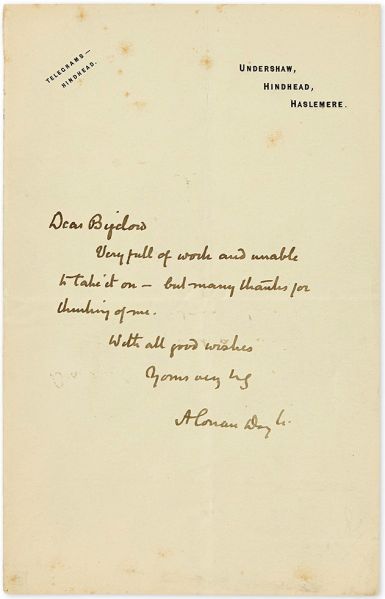 TELEGRAMS—
HINDHEAD.
UNDERSHAW,
HINDHEAD,
HASLEMERE.
Dear Bigelow
Very full of work and unable
to take it on – but many thanks for
thinking of me.
With all good wishes
Yours very
A Conan Doyle.